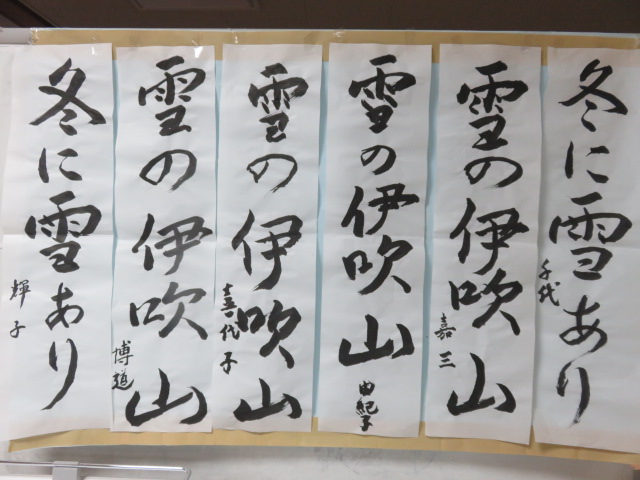 冬に雪あり
千代
雪の伊吹山
嘉三
雪の伊吹山
由紀子
雪の伊吹山
喜代子
雪の伊吹山
博道
冬に雪あり
輝子